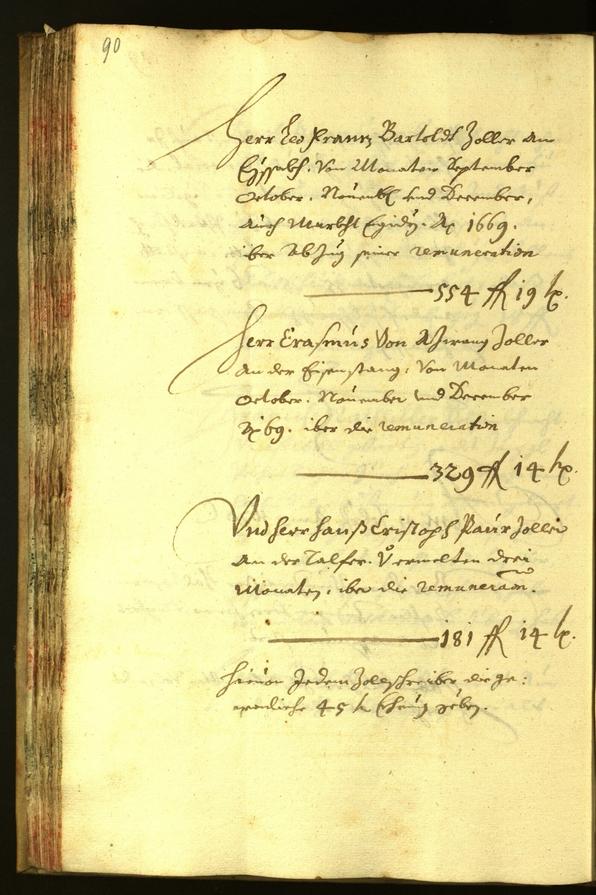 90
Herr Leo Franz Bartoldt Zoller am
Eyssakh. Von Monaten September
October. Nouemb. vnd December,
auch Markht Egidy. Ao 1669.
iber Abzug seiner remuneration
554 f 19 kr.
Herr Erasmus Von Zoller
an der Eisenstang, Von Monaten
October. Nouember vnd December
69. iber die remuneration
329 f 14 kr.
Vnd Herr Hanß Cristoph Paur Zoller
an der Talfer. Vermelten drei
Monaten, iber die remuneraon.
181 f 14 kr.
Hieuon Jedem Zollschreiber die ge:
wendliche 45 kr geben.